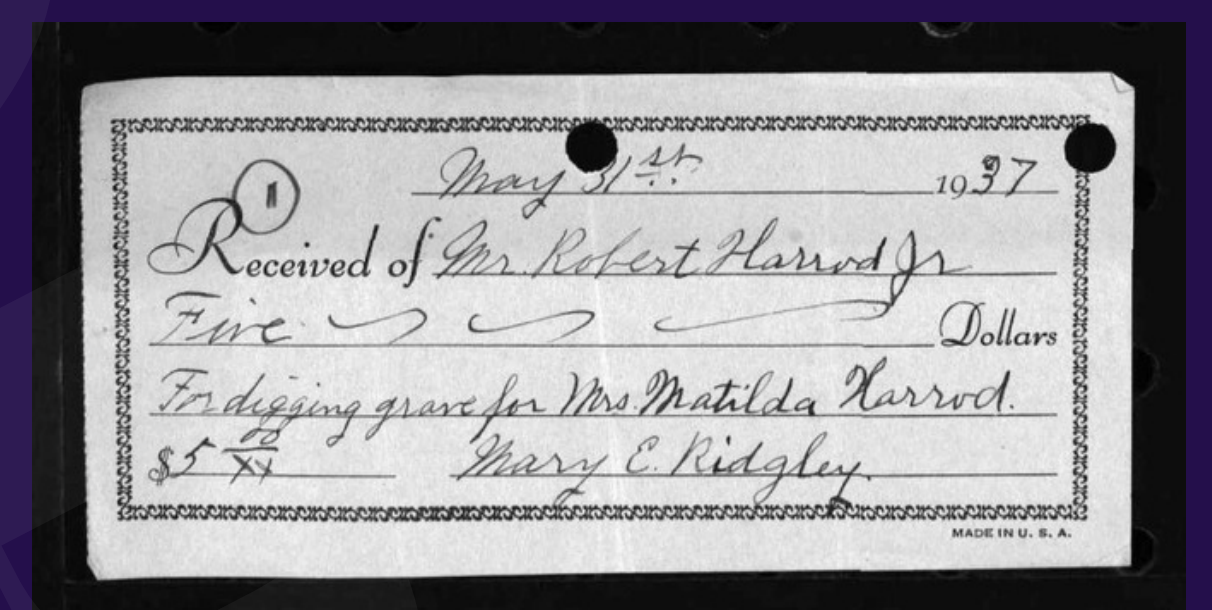 1
May 31st 1937
Received of Mr. Robert Harrod Jr
Five Dollars
For digging grave for Mrs. Matilda Harrod.
$5 00/xx Mary E. Ridgley.
MADE IN U. S. A.